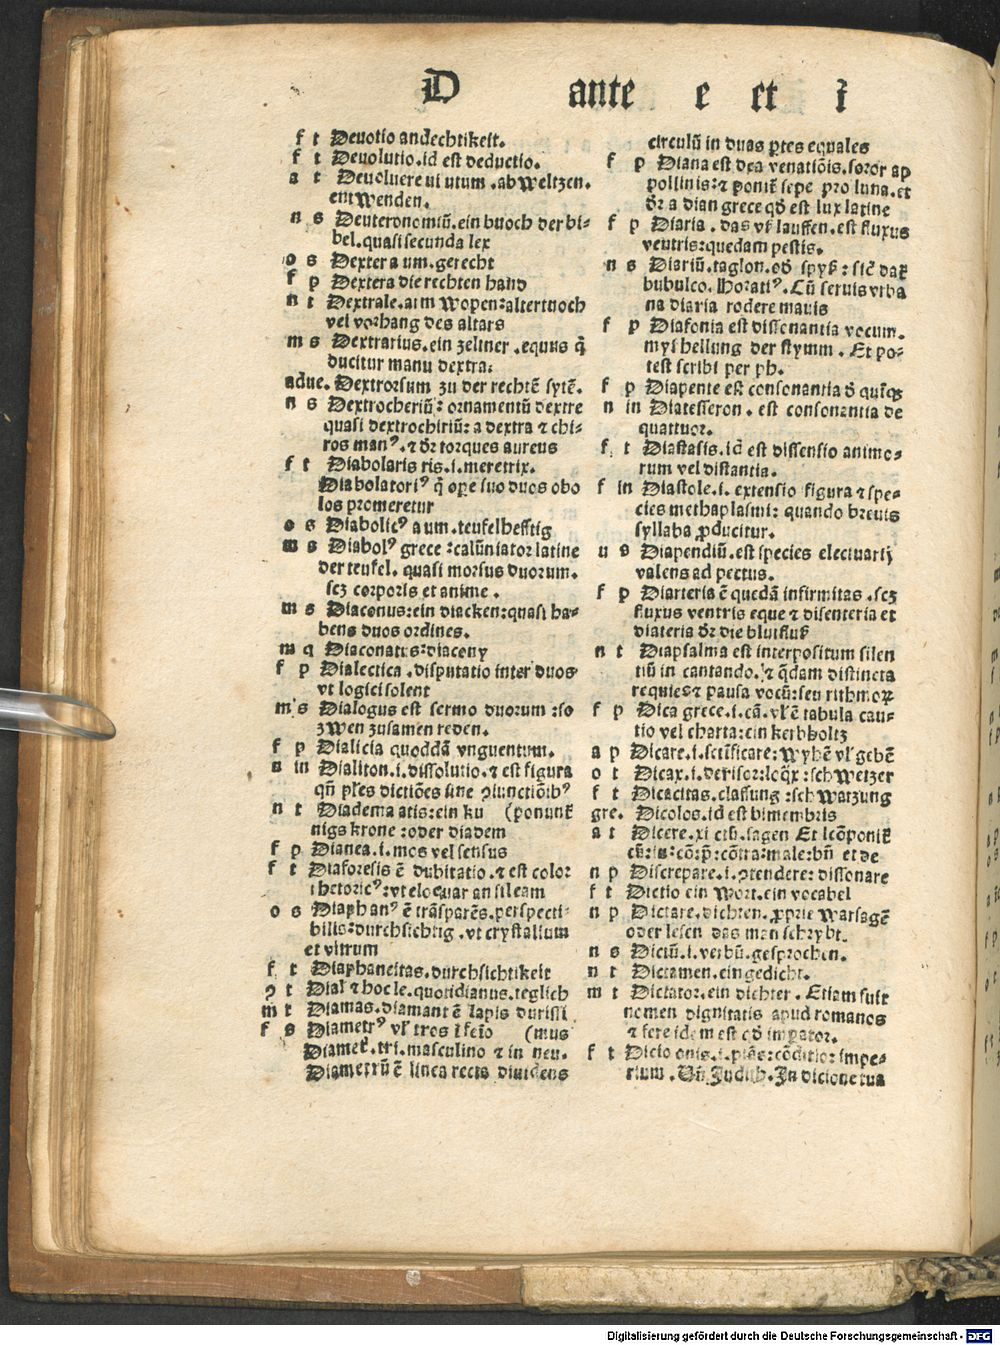 D ante e et i
f t Deuotio andechtikeit.
f t Deuolutio.id est deductio.
a t Deuoluere ui utum .abweltzen.
entwenden.
n s Deuteronomiū.ein buoch der bi-
bel.quasi secunda lex
o s Dexter a um.gerecht
f p Dextera die rechten hand
n t Dextrale.arm wopen:alter tuoch
vel vorhang des altars
m s Dextrarius.ein zeltner .equus q̄
ducitur manu dextra:
adue. Dextrorsum zu der rechtē sytē.
n s Dextrocheriū: ornamentū dextre
quasi dextrochiriū: a dextra ⁊ chi-
ros manꝰ.⁊ dr̄ torques aureus
f t Diabolaris ris.i.meretrix.
Diabolatoriꝰ q̄ oꝑe suo duos obo
los promeretur
o s Diabolicꝰ a um.teufelhefftig
m s Diabolꝰ grece :calūniator latine
der teufel. quasi morsus duorum.
scz corporis et anime .
m s Diaconus:ein diacken:quasi ha-
bens duos ordines.
m q Diaconatus:diacony
f p Dialectica .disputatio inter duos
vt logici solent
m s Dialogus est sermo duorum :so
zwen zusamen reden.
f p Dialicia quoddā vnguentum.
n in Dialiton.i.dissolutio.⁊ est figura
qn̄ pl'es dictiōes sine ꝯiunctiōibꝰ
n t Diadema atis:ein kü (ponunt̄
nigs krone :oder diadem
f p Dianea.i.mos vel sensus
f t Diaforesis ē dubitatio.⁊ est color
rhetoricꝰ:vt eloquar an sileam
o s Diaphanꝰ ē trāsparēs.perspecti-
bilis:durchsichtig .vt crystallum
et vitrum
f t Diaphaneitas.durchsichtikeit
ꝯ t Dial ⁊ hoc le.quotidianus.teglich
m t Diamas.diamant ē lapis durissi
f s Diametrꝰ vl' tros i feīo (mus
Diamet̄.tri.masculino ⁊ in neu.
Diametrū ē linea recta diuidens
circulū in duas ꝑtes equales
f p Diana est dea venatiōis.soror ap
pollinis:⁊ ponit̄ sepe pro luna.et
dr̄ a dian grece qd̄ est lux latine
f p Diaria .das vl' lauffen.est fluxus
ventris:quedam pestis.
n s Diariū.taglon.od' spyß : sic̄ dat̄
bubulco. Horatiꝰ. Cū seruis vrba
na diaria rodere mauis
f p Diafonia est dissonantia vocum.
myß hellung der stymm . Et po-
test scribi per ph.
f p Diapente est consonantia d' quīqꝫ
n in Diatesseron . est consonantia de
quattuor.
f t Diastasis.id est dissensio animo-
rum vel distantia.
f in Diastole.i. extensio figura ⁊ spe-
cies methaplasmi: quando breuis
syllaba ꝓducitur.
n s Diapendiū.est species electuarij
valens ad pectus.
f p Diarteris ē quedā infirmitas .scz
fluxus ventris eque ⁊ disenteria et
diateria dr̄ die bluifluß
n t Diapsalma est interpositum silen
tiū in cantando.⁊ q̄dam distincta
requies ⁊ pausa vocū:seu rithmoꝝ
f p Dica grece.i.cā.vl' ē tabula cau-
tio vel charta:ein kerbholtz
a p Dicare.i.sctificare:wyhē vl' gebē
o t Dicax.i.derisor:loq̄x :schwetzer
f t Dicacitas.claffung :schwatzung
gre. Dicolos.id est bimembris
a t Dicere.xi ctū.sagen Et ꝯponit̄
ēn: in: cō: p̄: cōtra: male: bn̄ et de
n p Discrepare.i.ꝯtendere: dissonare
f t Dictio ein wort.ein vocabel
n p Dictare.dichten. ꝓprie warsagē
oder lesen das man schrybt.
n s Dictū.i.verbū.gesprochen.
n t Dictamen.ein gedicht.
m t Dictator.ein dichter . Etiam fuit
nomen dignitatis apud romanos
⁊ fere idem est qd̄ imꝑator.
f t Dicio onis.i.ptās:cōditio: impe-
rium . Vn̄ Judith.In dicione tua
Digitalisierung gefördert durch die Deutsche Forschungsgemeinschaft - DFG